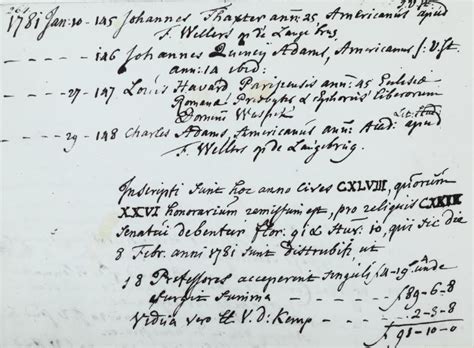 1781 Jan: 10 - 145 Johannes Thaxter ann: 25, Americanus apud
F. Wellers op de Lange brug,
146 Johannes Quincy Adams, Americanus
ann: 14 ibid:
27 - 147 Louis Havard Parisiensis ann: 45 Eclesiæ
Romanæ Presbyter & Ephorus Liberorum
Domini
29 - 148 Charles Adams, Americanus ann: apud
F. Wellers op de Langebrug.
Inscripti sunt hoc anno Cives CXLVIII, quorum
XXVI honorarium remissum est, pro reliquis CXXII
Senatui debentur flor: 91 & stuv: 10, qui sic die
8 Febr. anni 1781 sunt distributi ut
18 Professores acceperint singuli f4-19 unde
surgit summa f89-6-8
Vidua vero H V. d: Kemp 2-3-8
f91-10-0